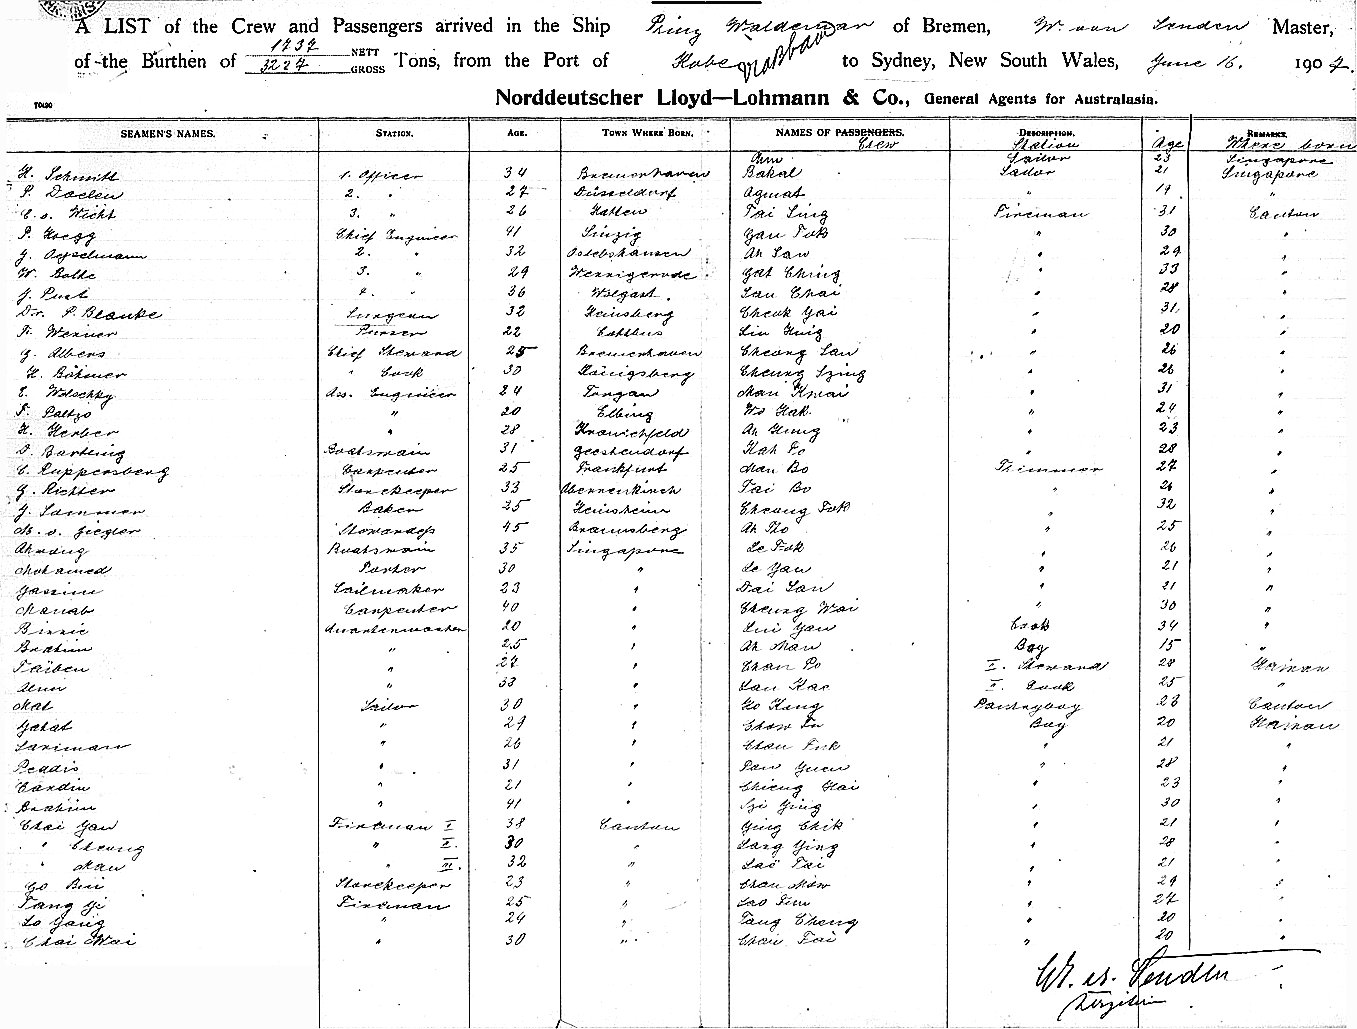 A LIST of the Crew and Passengers arrived in the Ship Prinz Waldemar of Bremen, W. von Senden Master,
of the Burthen of 1737 NETT 3227 GROSS Tons, from the Port of Kobe to Sydney, New South Wales, June 16. 1907.
Norddeutscher Lloyd—Lohmann & Co., General Agents for Australasia.
SEAMEN'S NAMES. STATION. AGE. TOWN WHERE BORN. NAMES OF PASSENGERS. Crew DESCRIPTION. Station Age REMARKS. Where born
Amu Sailor 23 Singapore
H. Schmidt 1. Officer 34 Bremerhaven Bakal Sailor 21 Singapore
P. Daelen 2. " 27 Düsseldorf Agmat " 19 "
C. v. Wicht 3. " 26 Hatten Tai Sing Fireman 31 Canton
P. Hoegg Chief Engineer 41 Sinzig Yau Fuk " 30 "
2. " 32 Oslebshausen Ah Saw " 29 "
W. Bolte 3. " 29 Wernigerode Yat Ching " 33 "
J. Pust 4. " 36 Wolgast. Lau Chai " 28 "
Dr. P. Blanke Surgeon 32 Heinsberg Cheuk Yai " 31 "
Fr. Werner Purser 22 Cottbus Liu Hing " 20 "
G. Albers Chief Steward 25 Bremerhaven Cheong Lau " 26 "
H. Böhmer " Cook 30 Königsberg Cheung Szing " 26 "
E. Wolschky Ass. Engineer 24 Torgau Man Kwai " 31 "
F. Paltzo " 20 Elbing Wo Hak " 24 "
H. Herber " 28 Kranichfeld Ah Hung " 23 "
D. Bartling Boatsmain 31 Geestendorf Kah Po " 28 "
C. Ruppersberg Carpenter 25 Frankfurt Man Bo Trimmer 27 "
G. Richter Storekeeper 33 Tai Bo " 26 "
J. Sommer Baker 25 Heinsheim Cheong Fuk " 32 "
M. v. Ziegler Stewardess 45 Braunsberg Ah Ho " 25 "
Ahwang Boatsmain 35 Singapore Le Fok " 26 "
Mohamed Porter 30 " Le Yau " 21 "
Yassim Sailmaker 23 " Tai San " 21 "
Manab Carpenter 40 " Cheung Wai " 30 "
Binnie Quartermaster 20 " Lui Yau Cook 34 "
Brahim " 25 " Ah Man Boy 15 "
Taiben " 27 " Chan Po II. Steward 28 Hainan
Amu " 38 " Lau Kae II. Cook 25 "
Mat Sailor 30 " Ho Hong Pantryboy 23 Canton
Gahat " 29 " Chow Fu Boy 20 Hainan
Sariman " 26 " Chau Fuk " 21 "
Peadis " 31 " Pan Yuen " 28 "
Cardin " 21 " Chieng Hai " 23 "
Brahim " 41 " Szi Ying " 30 "
Chai Yau Fireman I 38 Canton Ying Chik " 21 "
" Cheong " II. 30 " Lang Ying " 28 "
" Man " III. 32 " Lao Tai " 21 "
Co Bui Storekeeper 23 " Chau Mow " 29 "
Fang Yi Fireman 25 " Lao Fim " 27 "
Lo Yong " 24 " Tang Cheng " 20 "
Choi Wai " 30 " Chau Tai " 20 "
W. v. Senden